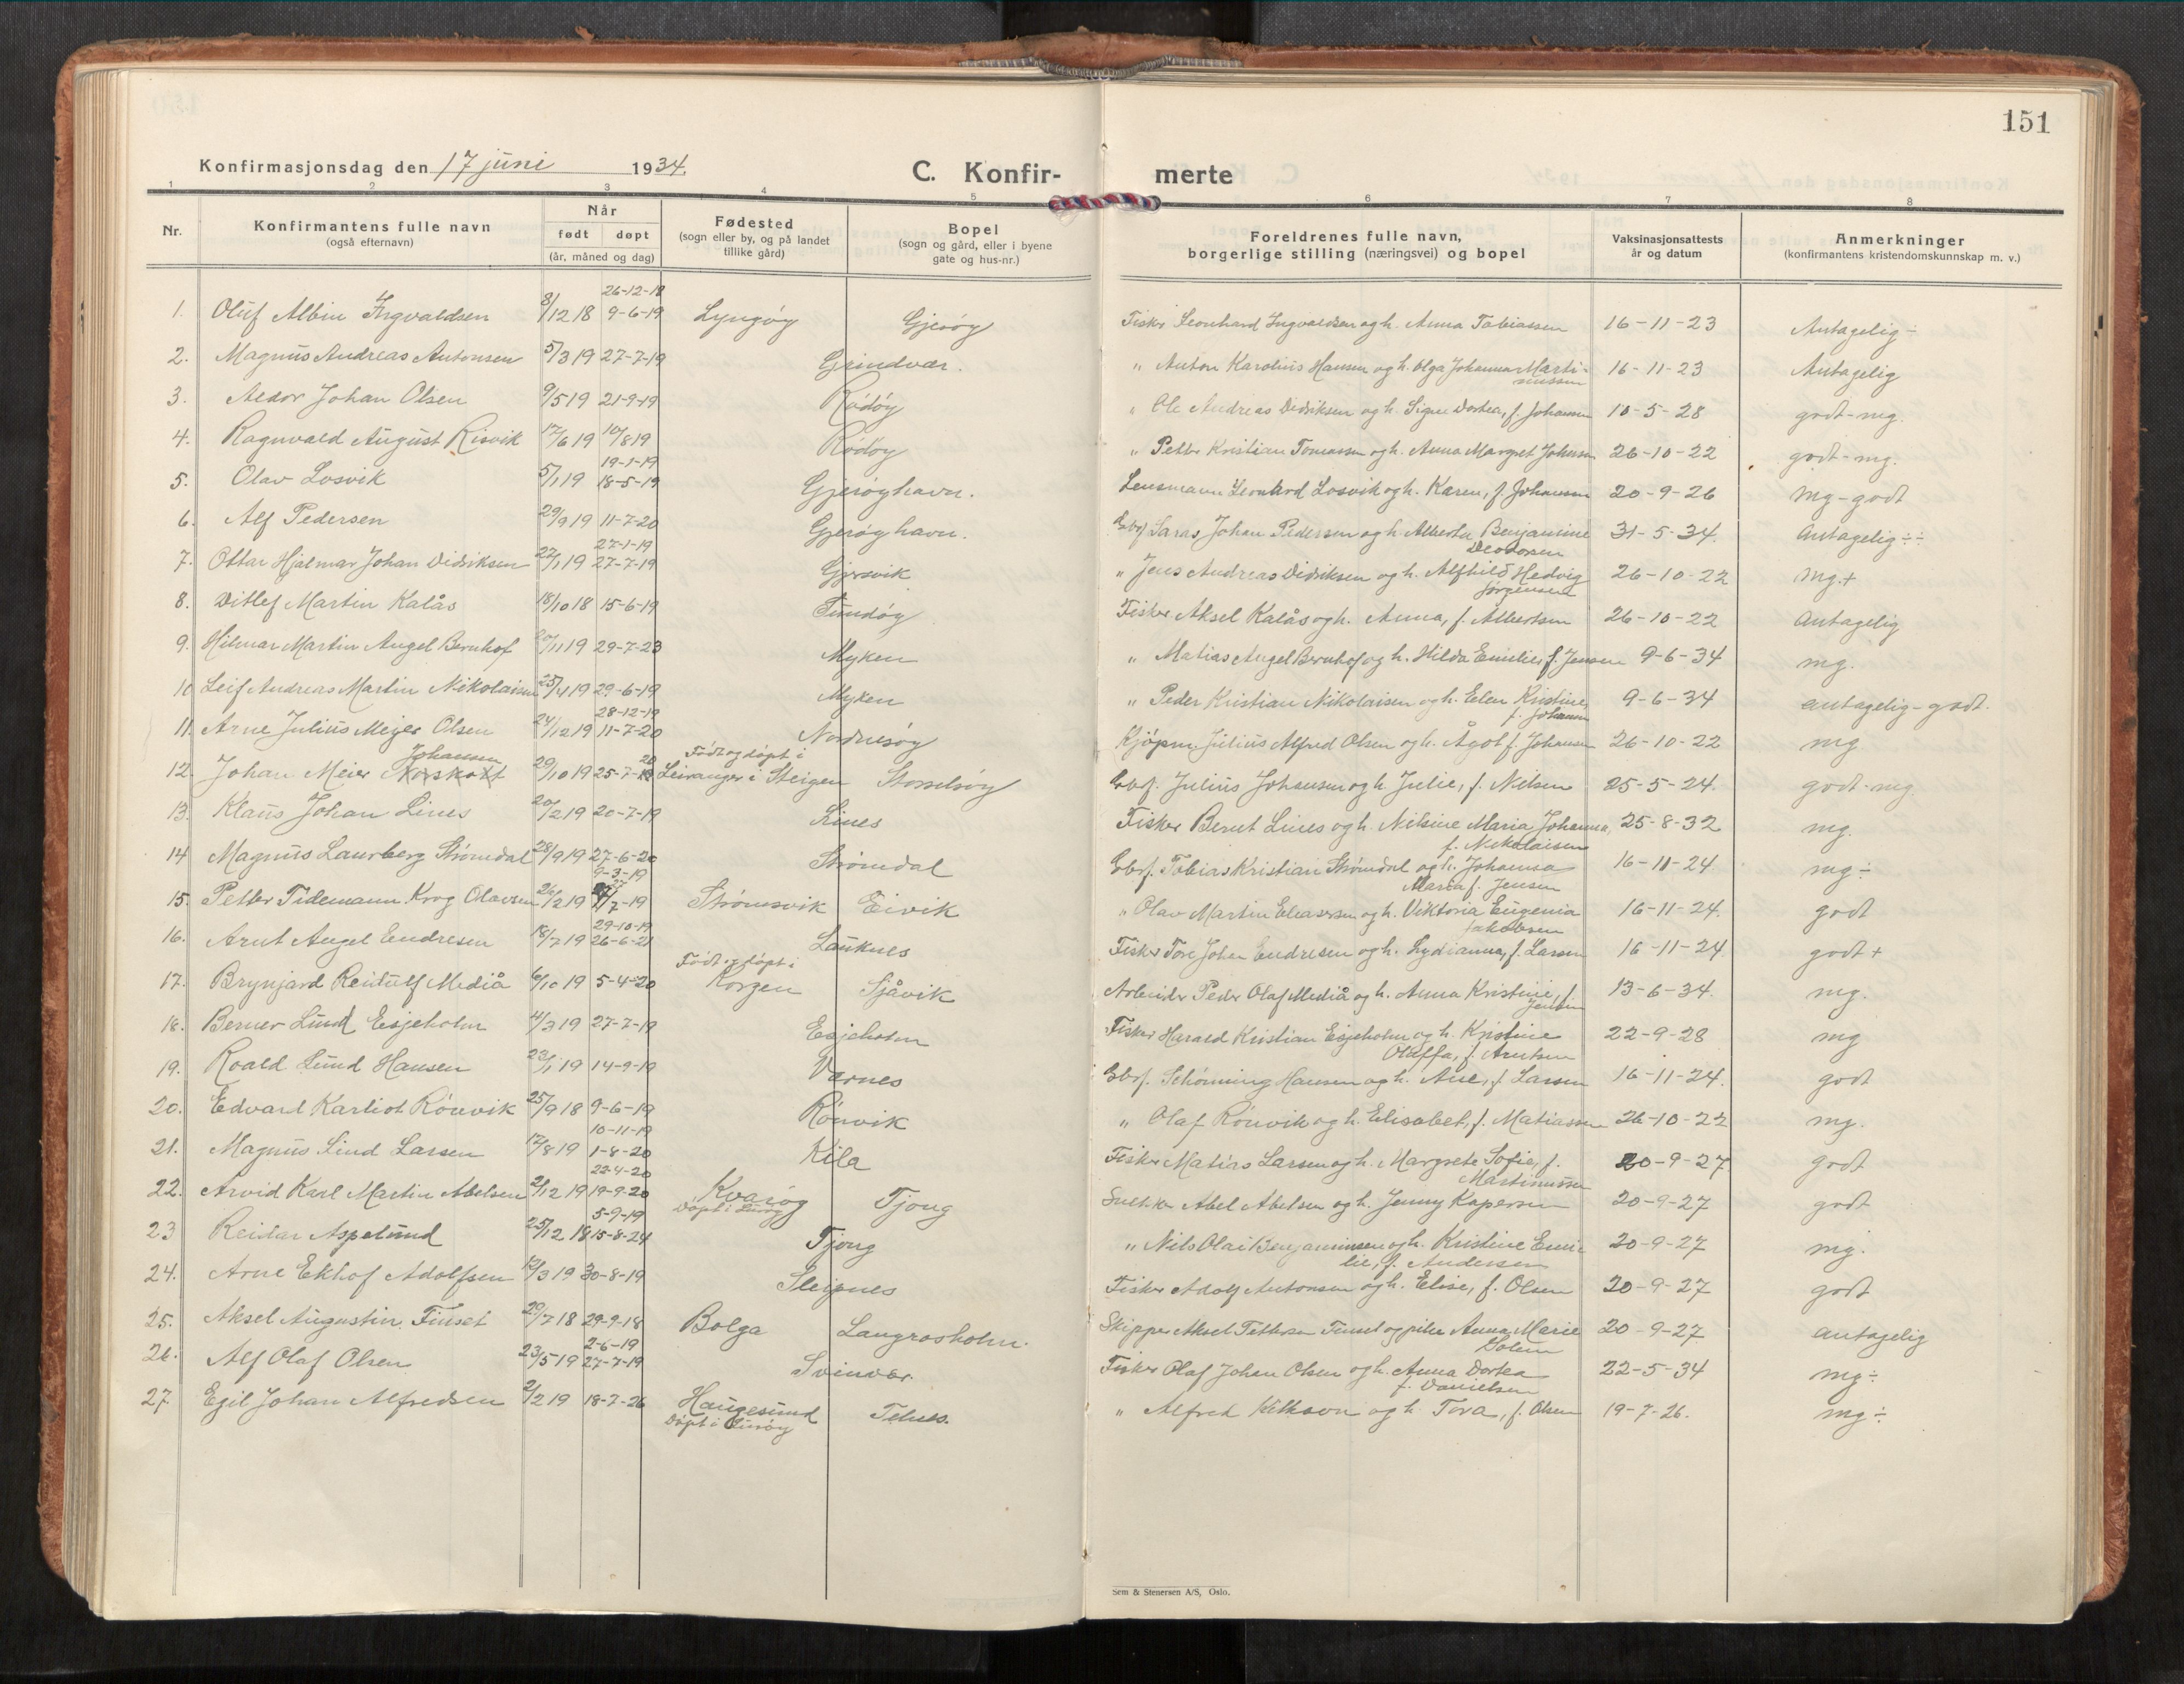 151
Konfirmasjonsdag den 17 juni 1934.
C. Konfir-
merte
1 2 3 4 5 6 7 8
Nr.
Konfirmantens fulle navn
(også efternavn)
Når
født døpt
(år, måned og dag)
Fødested
(sogn eller by, og på landet
tillike gård)
Bopel
(sogn og gård, eller i byene
gate og hus-nr.)
Foreldrenes fulle navn,
borgerlige stilling (næringsvei) og bopel
Vaksinasjonsattests
år og datum
Anmerkninger
(konfirmantens kristendomskunnskap m. v.)
26-12-18
1. Oluf Albin Ingvaldsen 8/12 18 9-6-19 Lyngøy Gjerøy Fisker Leonhard Ingvaldsen og h. Anna Tobiassen 16-11-23 Antagelig ÷
2. Magnus Andreas Antonsen 5/3 19 27-7-19 Grindvær. " Anton Karolius Hansen og h. Olga Johanna Marti- 16-11-23 Antagelig
nussen
3. Aldor Johan Olsen 9/5 19 21-9-19 Rødøy " Ole Andreas Didriksen og h. Signe Dortea, f. Johansen 10-5-28 godt-mg.
4. Ragnvald August Risvik 17/6 19 10/8 19 Rødøy " Petter Kristian Tomassen og h. Anna Margret Johnsen 26-10-22 godt-mg.
19-1-19
5. Olav Losvik 5/1 19 18-5-19 Gjerøyhavn. Lensmann Leonhard Losvik og h. Karen, f. Johansen 20-9-26 mg-godt
6. Alf Pedersen 29/9 19 11-7-20 Gjerøyhavn. Gbrf Saras Johan Pedersen og h. Alberta Benjamine 31-5-34. Antagelig ÷÷
Deodorsen
27-1-19
7. Ottar Hjalmar Johan Didriksen 22/1 19 27-7-19 Gjersvik " Jens Andreas Didriksen og h. Alfhild Hedvig 26-10-22 mg.+
Jørgensen
8. Ditlef Martin Kalås 18/10 18 15-6-19 Tundøy Fisker Aksel Kalås og h. Anna, f. Albertsen 26-10-22 Antagelig
9. Hilmar Martin Angel Bernhof 20/11 19 29-7-23 Myken " Matias Angel Bernhof og h. Hilda Emilie, f. Jensen 9-6-34 mg.
10 Leif Andreas Martin Nikolaisen 25/4 19 29-6-19 Myken " Peder Kristian Nikolaisen og h. Elen Kristine, 9-6-34 antagelig-godt.
f. Johansen
28-12-19
11. Arne Julius Meyer Olsen 24/12 19 11-7-20 Nordnesøy Kjøpm. Julius Alfred Olsen og h. Ågot f. Johansen 26-10-22 mg
Johansen Født og døpt i
12. Johan Meier Norskott 29/10 19 25-7-20 Leiranger i Steigen Storselsøy Gbrf. Julius Johansen og h. Julie, f. Nilsen 25-5-24. godt-mg.
13. Klaus Johan Lines 20/2 19 20-7-19 Lines Fisker Bernt Lines og h. Nilsine Maria Johanna, 25-8-32 mg.
f. Nikolaisen
14 Magnus Laurberg Strømdal 28/9 19 27-6-20 Strømdal Gbrf. Tobias Kristian Strømdal og h. Johanna 16-11-24. mg÷
Maria f. Jensen
9-3-19
15. Petter Tidemann Krog Olavsen 26/2 19 27/7-19 Strømsvik Eivik " Olav Martin Eleasersen og h. Viktoria Eugenia 16-11-24. godt
Jakobsen
29-10-19
16. Arnt Angel Endresen 18/7 19 26-6-21 Lauknes Fisker Tore Johan Endresen og h. Lydianna, f. Larsen 16-11-24. godt +
Født og døpt i
17. Brynjard Reidulf Mediå 6/10 19 5-4-20 Korgen Sjåvik Arbeider Peder Olaf Mediå og h. Anna Kristine, f. 13-6-34. mg.
Jensen
18. Berner Lund Esjeholm 4/3 19 27-7-19 Esjeholm Fisker Harald Kristian Esjeholm og h. Kristine 22-9-28 mg
Olaffa, f. Arntsen
19. Roald Lund Hansen 23/1 19 14-9-19 Værnes Gbrf. Schønning Hansen og h. Aise, f. Larsen 16-11-24. godt
20. Edvard Karliot Rönvik 25/9 18 9-6-19 Rönvik " Olaf Rönvik og h. Elisabet, f. Matiassen 26-10-22 mg.
10-11-19
21. Magnus Lind Larsen 17/8 19 1-8-20 Kila Fisker Matias Larsen og h. Margrete Sofie, f. 20-9-27 godt
Martinussen
22-4-20
22. Arvid Karl Martin Abelsen 2/12 19 19-9-20 Kvarøy Tjong Snekker Abel Abelsen og h. Jenny Kapersen 20-9-27 godt
Døpt i Lurøy
5-9-19
23 Reidar Aspelund 25/12 18 15-8-24 Tjong " Nils Olai Benjaminsen og h. Kristine Emi- 20-9-27 mg.
lie, f. Andersen
24. Arne Ekhof Adolfsen 12/3 19 30-8-19 Sleipnes Fisker Adolf Antonsen og h. Elise, f. Olsen 20-9-27 godt
25. Aksel Augustin Finset 20/7 18 29-9-18 Bolga Langrosholm. Skipper Aksel Pettersen Finset og pike Anna Marie 20-9-27 antagelig
Solem
2-6-19
26. Alf Olaf Olsen 23/5 19 27-7-19 Svinvær. Fisker Olaf Johan Olsen og h. Anna Dortea 22-5-34 mg÷
f. Danielsen
27. Egil Johan Alfredsen 2/2 19 18-7-26 Haugesund Telnes. " Alfred Kilhavn og h. Tora, f. Olsen 19-7-26. mg÷
Døpt i Lurøy
Sem & Stenersen A/S, Oslo.